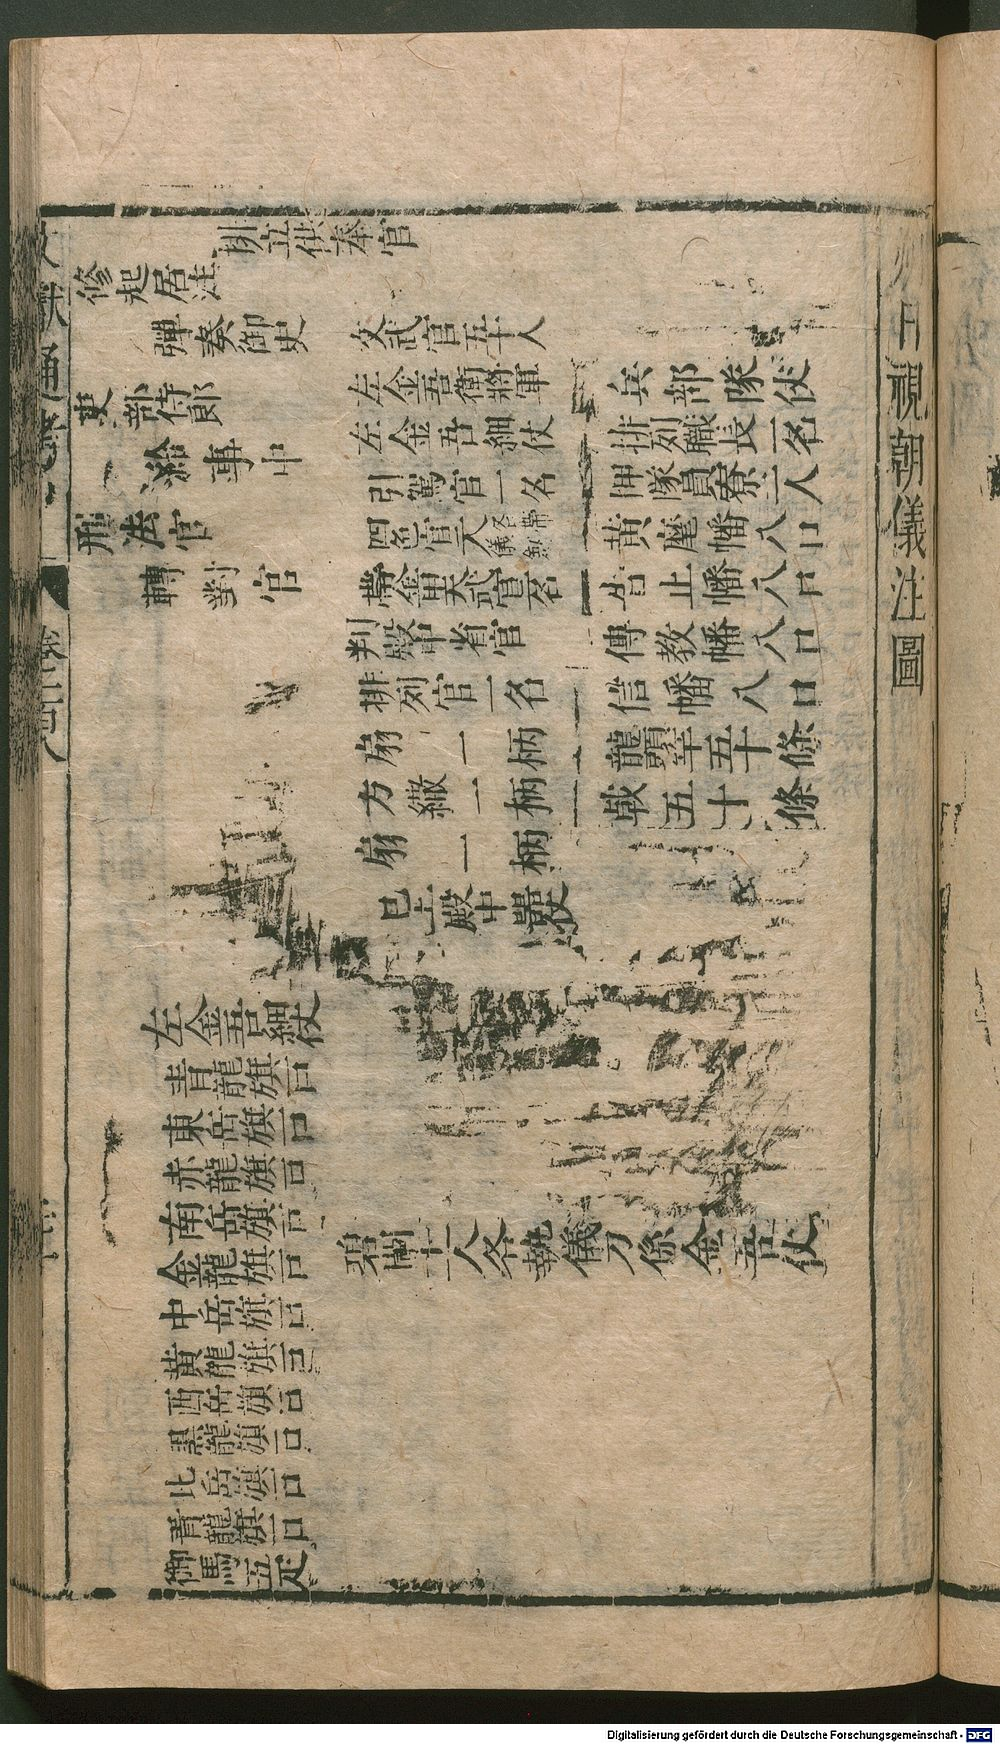 日視朝儀注圖
兵部隊仗
排列職長一名
押隊員寮二人
黃麾幡八口
告止幡八口
傳教幡八口
信幡八口
龍頭竿五十條
戟五十條
文武官五十人
左金吾衛將軍
左金吾細仗
引駕官一名
四色官六人各帶儀劔
帶金甲天武官一名
判殿中省官
排列官一名
扇一柄
方繖二柄
扇一柄
已上殿中嚻仗
碧襴十二人各執儀刀係金吾仗
排立供奉官
修起居注
彈奏御史
吏部侍郎
給事中
刑法官
轉對官
左金吾細仗
青龍旗一口
東岳旗一口
赤龍旗一口
南岳旗一口
金龍旗一口
中岳旗一口
黃龍旗一口
西岳旗一口
黑龍旗一口
北岳旗一口
青龍旗一口
御馬五疋
Digitalisierung gefördert durch die Deutsche Forschungsgemeinschaft - DFG